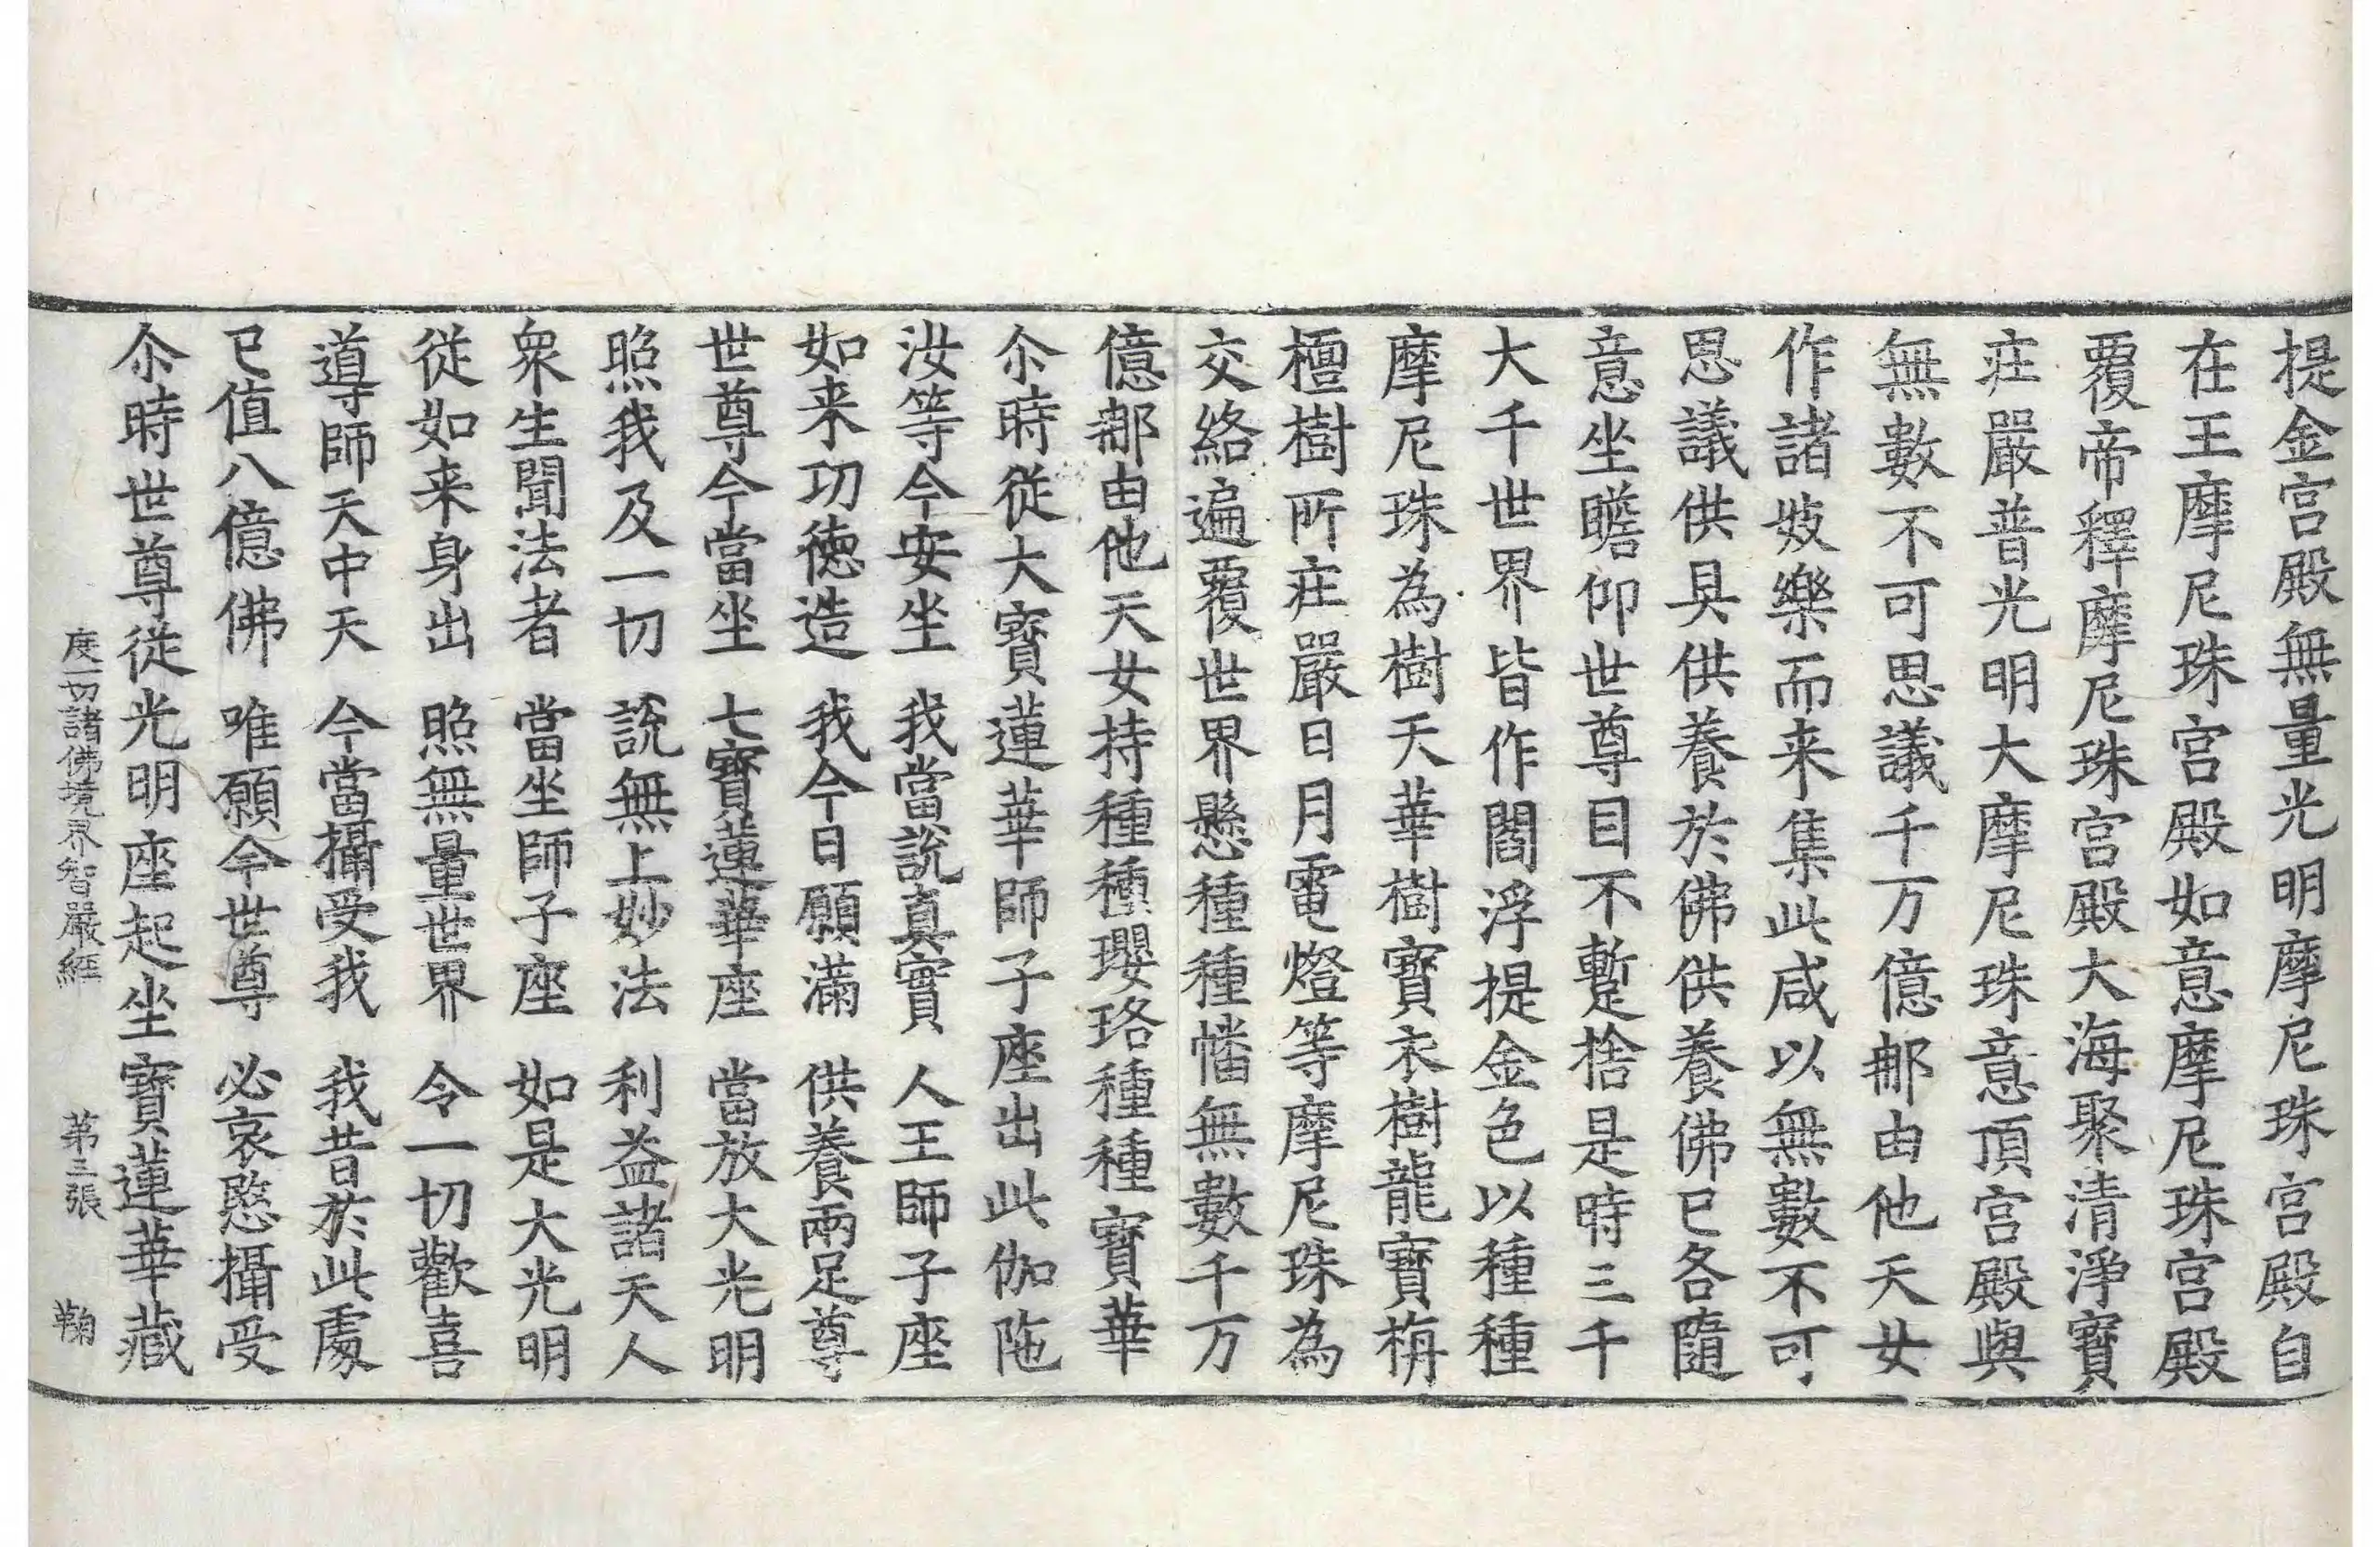 提金宮殿無量光明摩尼珠宮殿自
在王摩尼珠宮殿如意摩尼珠宮殿
覆帝釋摩尼珠宮殿大海聚清淨寶
庄嚴普光明大摩尼珠意頂宮殿與
無數不可思議千万億那由他天女
作諸妓樂而来集此咸以無數不可
思議供具供養於佛供養佛已各隨
意坐瞻仰世尊目不暫捨是時三千
大千世界皆作閻浮提金色以種種
摩尼珠為樹天華樹寶衣樹龍寶栴
檀樹所庄嚴日月電燈等摩尼珠為
交絡遍覆世界懸種種幡無數千万
億那由他天女持種種瓔珞種種寶華
尒時從大寶蓮華師子座出此伽陁
汝等今安坐　我當說真實　人王師子座
如来功德造　我今日願滿　供養兩足尊
世尊今當坐　七寶蓮華座　當放大光明
照我及一切　說無上妙法　利益諸天人
衆生聞法者　當坐師子座　如是大光明
從如来身出　照無量世界　令一切歡喜
導師天中天　今當攝受我　我昔於此處
已值八億佛　唯願今世尊　必哀愍攝受
尒時世尊從光明座起坐寶蓮華藏
度一切諸佛境界智嚴經　第三張　鞠